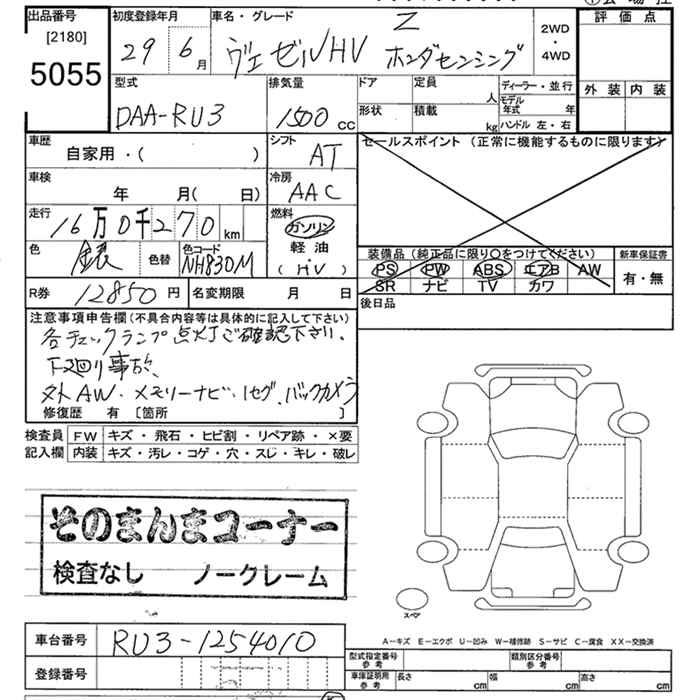 出品番号 初度登録年月 車名・グレード 評価点
[2180]
5055
29 6月 ヴェゼルHV Z ホンダセンシング 2WD・4WD
外装 内装
型式 排気量 ドア 定員 人 ディーラー・並行
DAA-RU3 1500 cc 形状 積載 kg モデル年式 年
ハンドル 左・右
車歴 シフト セールスポイント (正常に機能するものに限ります)
自家用・( ) AT
車検 冷房
年 月( 日) AAC
走行 燃料
16万0千270km ガソリン
軽油
(HV)
色 銀 色替 色コード NH830M
装備品 (純正品に限り○をつけてください) 新車保証書
PS PW ABS エアB AW 有・無
SR ナビ TV カワ
R券 12850円 名変期限 月 日 後日品
注意事項申告欄(不具合内容等は具体的に記入して下さい)
各チェックランプ点灯ご確認下さい。
下廻り事故、
外AW、メモリーナビ、1セグ、バックカメラ
修復歴 有 [箇所 ]
検査員 FW キズ・飛石・ヒビ割・リペア跡・×要
記入欄 内装 キズ・汚レ・コゲ・穴・スレ・キレ・破レ
そのまんまコーナー
検査なし ノークレーム
スペア
A-キズ E-エクボ U-凹み W-補修跡 S-サビ C-腐食 XX-交換済
車台番号 RU3-1254010
型式指定番号 参考 類別区分番号 参考
登録番号
車庫証明用 参考 長さ cm 幅 cm 高さ cm